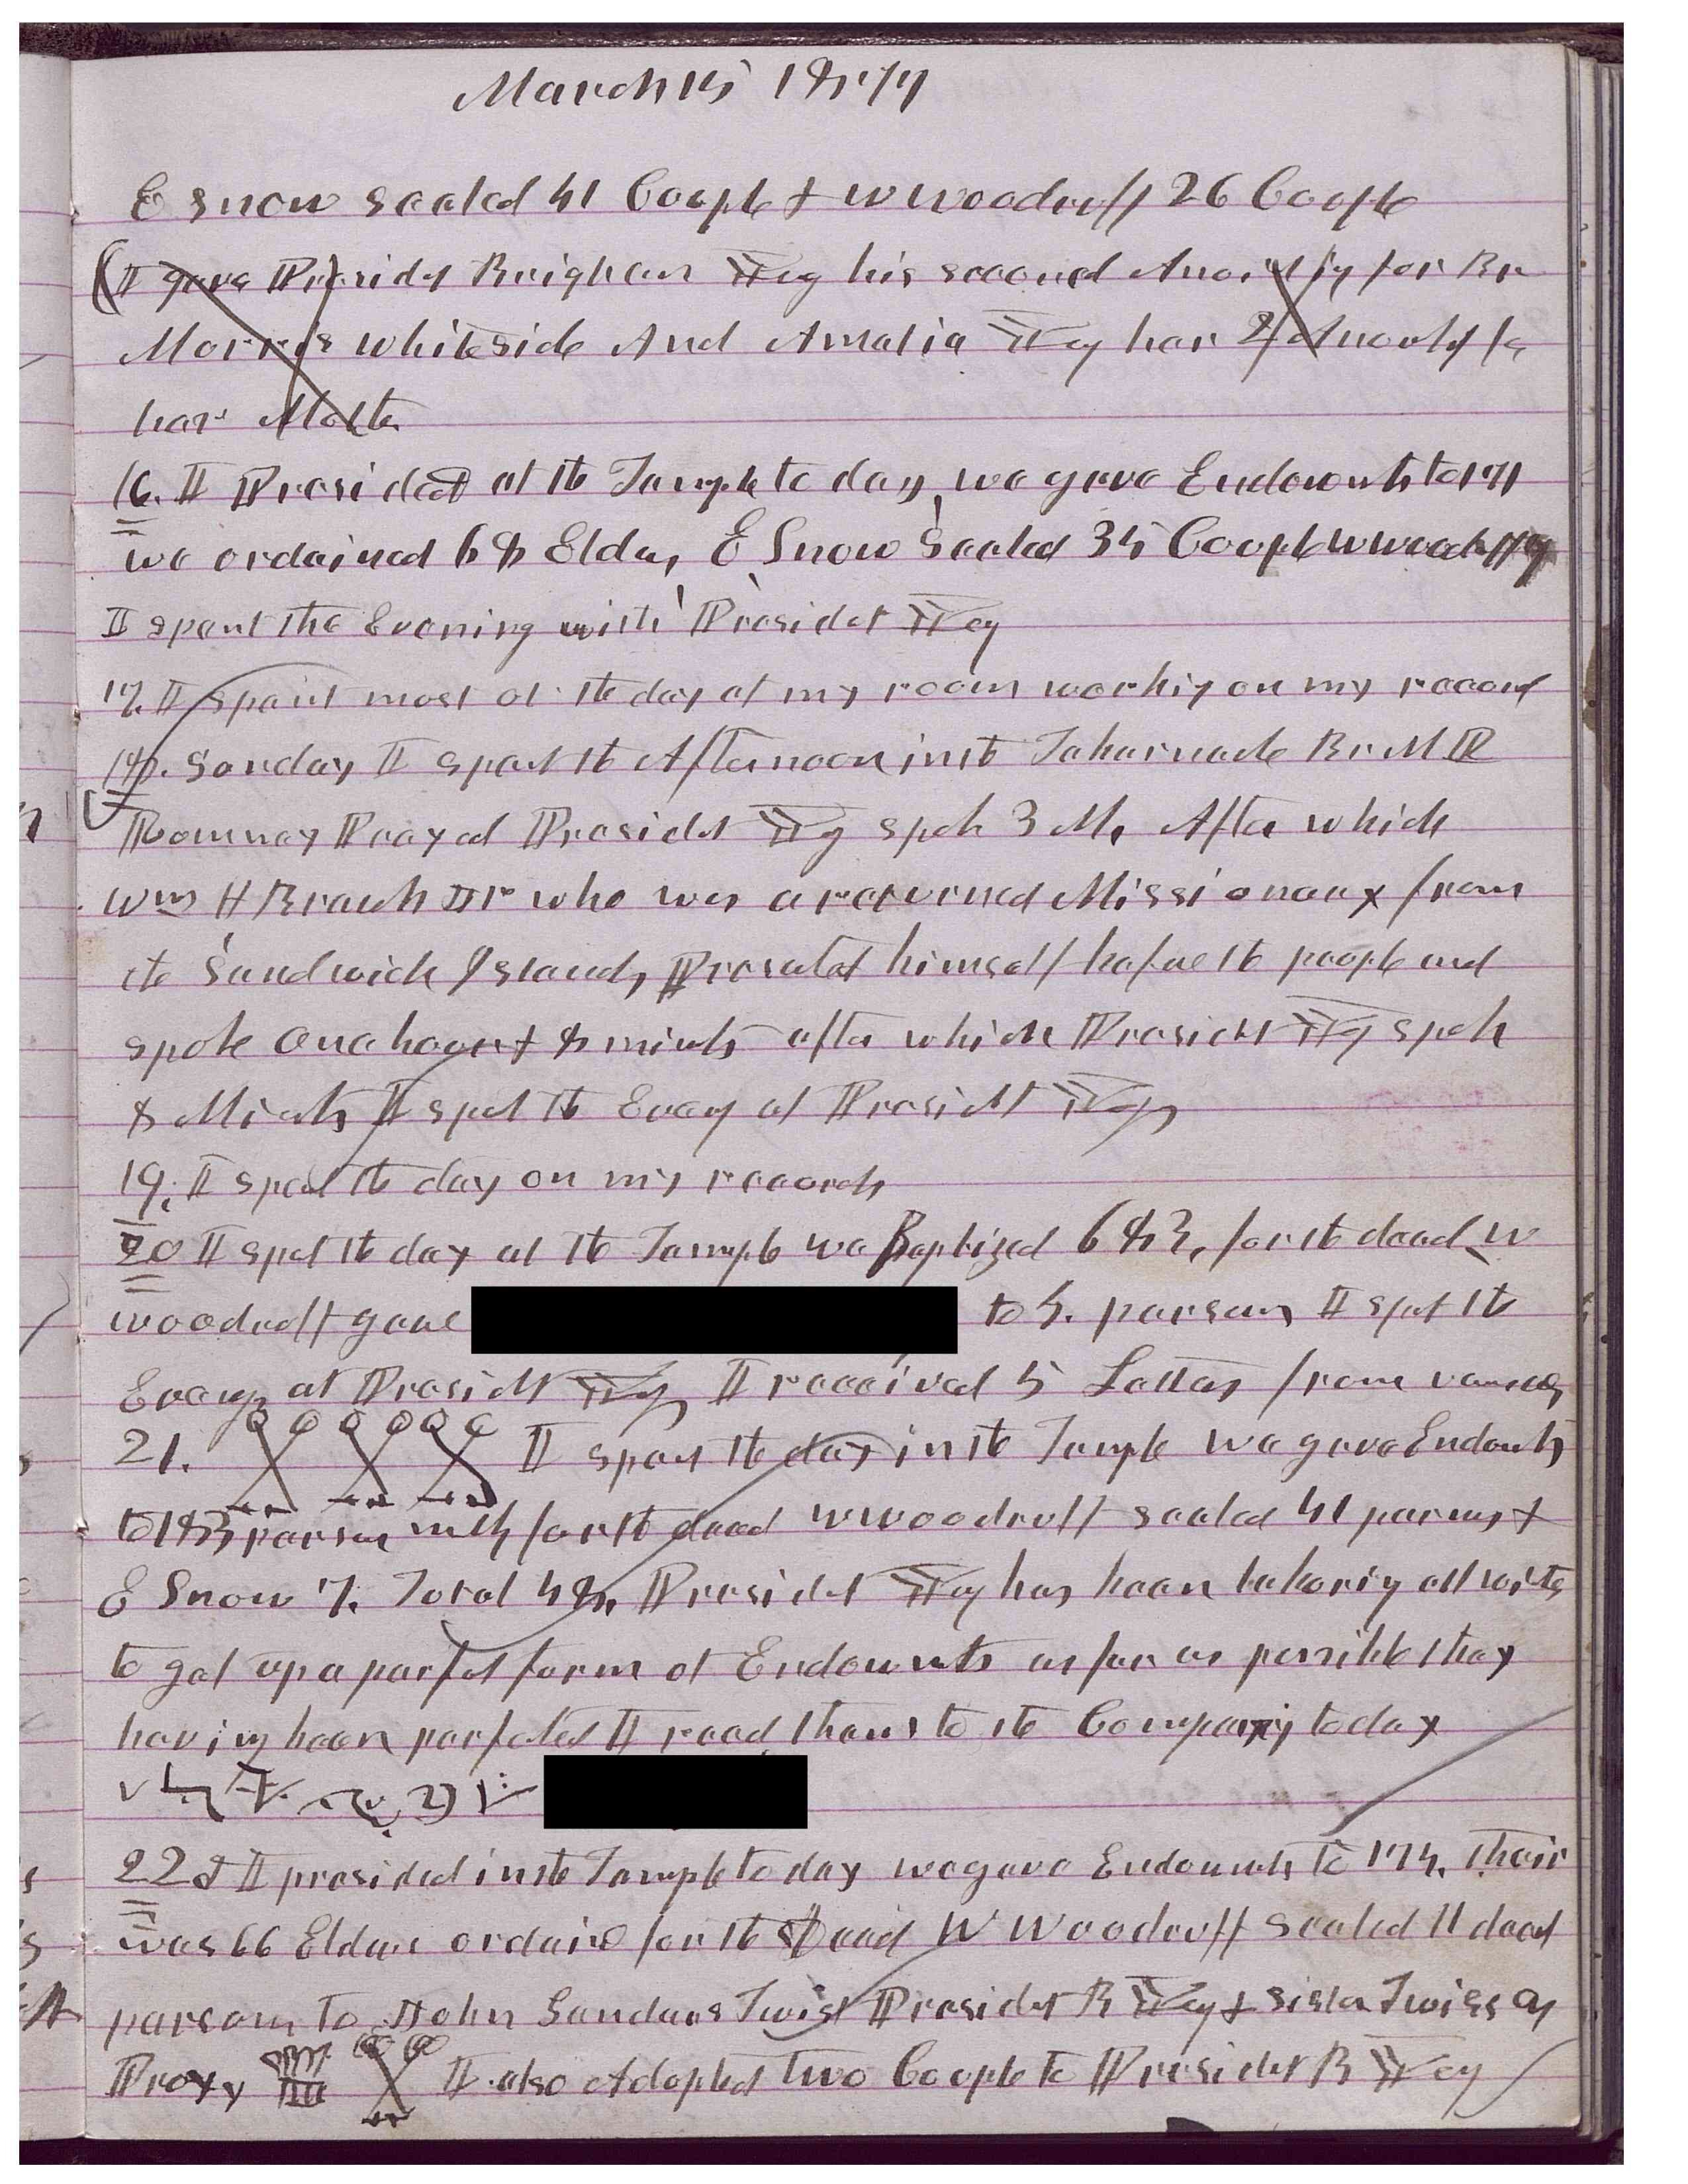 March 15 1877
E Snow sealed 41 Couple & W Woodruff 26 Couple
I gave Presidet Brigham Yg his second for Br
Morris Whiteside And Amalia Yg her 2d
her
16. I Presided at the Temple to day we gave Endowmts to 171
we ordained 68 Elders E Snow Sealed 35 Couple W Woodruff
I spent the Evening with Presidet Yg
17. I spent most of the day at my room workig on my record
18. Sunday I spent the Afternoon in the Tabernacle Br M P
Romney Prayed Presidet Yg spok 3 M. After which
Wm H Branch Jr who was a returned Missionary from
the Sandwich Islands Presented himself before the people and
spoke One hour & 8 minuts after which Presidet Yg spok
8 Minuts I spent the Eveng at Presidet Ygs
19. I spent the day on my records
20 I spet the day at the Temple we Baptized 683, for the dead W
Woodruff gave to 5. persons I spet the
Eveng at Presidt Ygs I received 5 Letters from various
21. I spent the day in the Temple we gave Endowmts
to 183 persons for the dead W Woodruff sealed 41 persons &
E Snow 7. Total 48, Presidet Yg has been laborig all winter
to get up a perfect form of Endowmts as far as possible they
having been perfected I read them to the Company today
22d I presided in the Temple to day we gave Endowmts to 175. Their
was 66 Elders ordaind for the Dead W Woodruff Sealed 11 dead
persons to John Sanders Twist Presidet B Yg & Sister Twiss as
Proxy I also Adopted Two Couple to Presidet B Yg